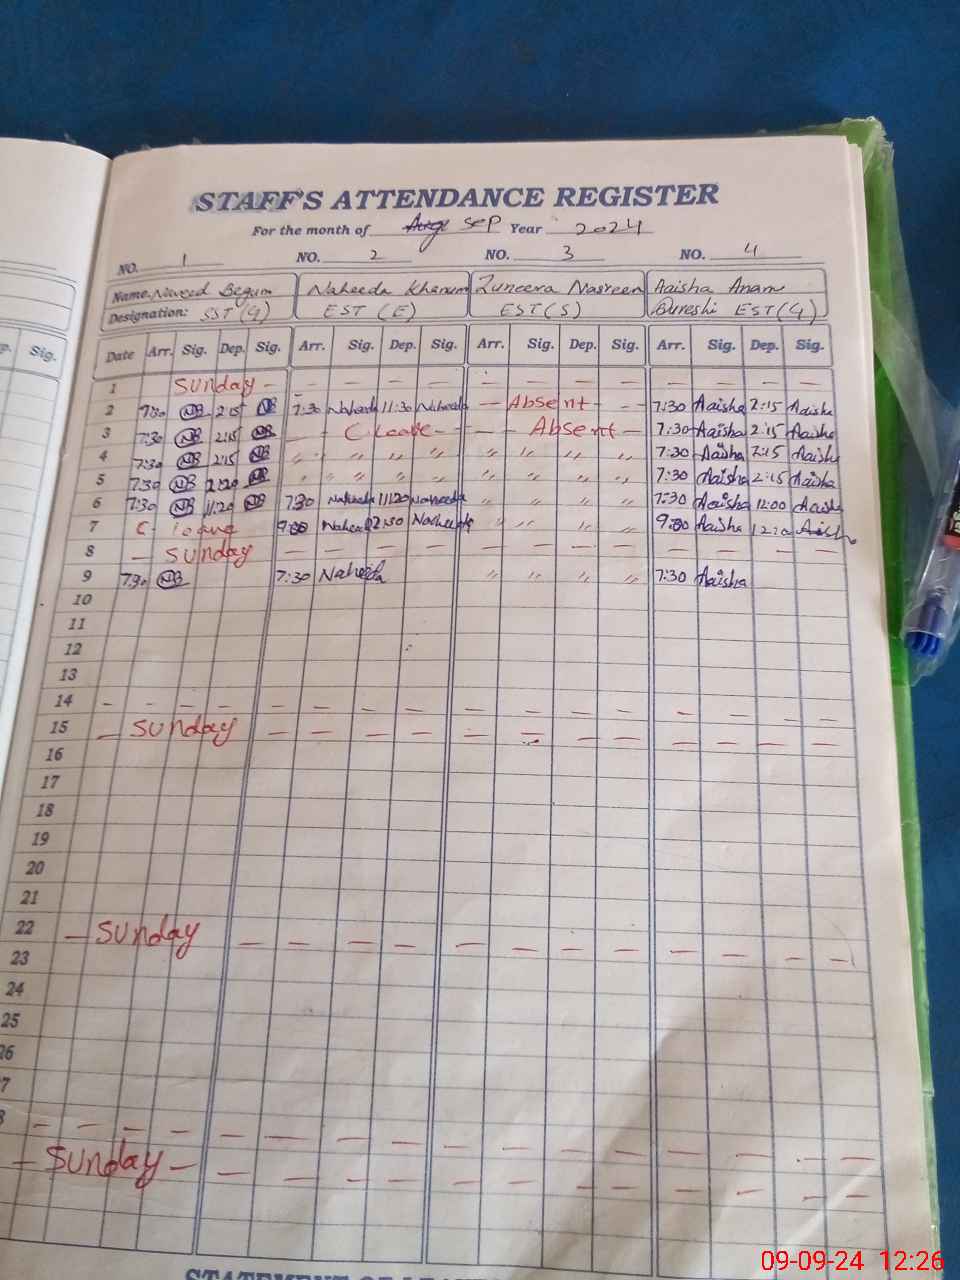 STAFF'S ATTENDANCE REGISTER
For the month of Aug Sep Year 2024
NO. 1 NO. 2 NO. 3 NO. 4
Name. Naveed Begum Naheeda Khanum Zuneera Nasreen Aaisha Anam
Designation: SST (G) EST (E) EST (S) Qureshi EST (G)
p. Sig. Date Arr. Sig. Dep. Sig. Arr. Sig. Dep. Sig. Arr. Sig. Dep. Sig. Arr. Sig. Dep. Sig.
1 Sunday - - - - - - - - - - - - -
2 7:30 NB 2:15 NB 7:30 Naheeda 11:30 Naheeda - Absent - - 7:30 Aaisha 2:15 Aaisha
3 7:30 NB 2:15 NB - C leave - - - Absent - 7:30 Aaisha 2:15 Aaisha
4 7:30 NB 2:15 NB " " " " " " " " 7:30 Aaisha 2:15 Aaisha
5 7:30 NB 2:20 NB " " " " " " " " 7:30 Aaisha 2:15 Aaisha
6 7:30 NB 11:20 NB 7:30 Naheeda 11:20 Naheeda " " " " 7:30 Aaisha 12:00 Aaisha
7 C- leave Naheeda 12:30 Naheeda " " " " Aaisha Aaisha
8 - Sunday - - - - - - - - - - - -
9 7:30 NB 7:30 Naheeda " " " " 7:30 Aaisha
10
11
12
13
14 - - - - - - - - - - - - - - - -
15 - Sunday - - - - - - - - - - - -
16
17
18
19
20
21
22 - Sunday - - - - - - - - - - - -
23
24
25
26
7
8 - - - - - - - - - - - - - - - -
- Sunday - - - - - - - - - - - - -
09-09-24 12:26